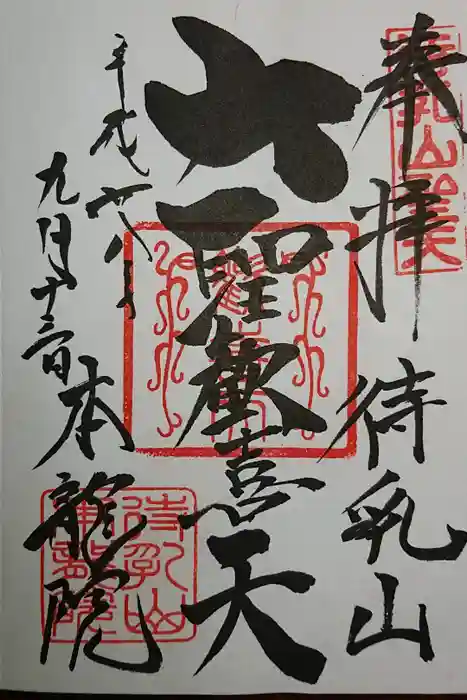 奉拝 待乳山
大聖歡喜天
平成廿八年
九月十三日
本龍院
待乳山聖天
待乳山
本龍院